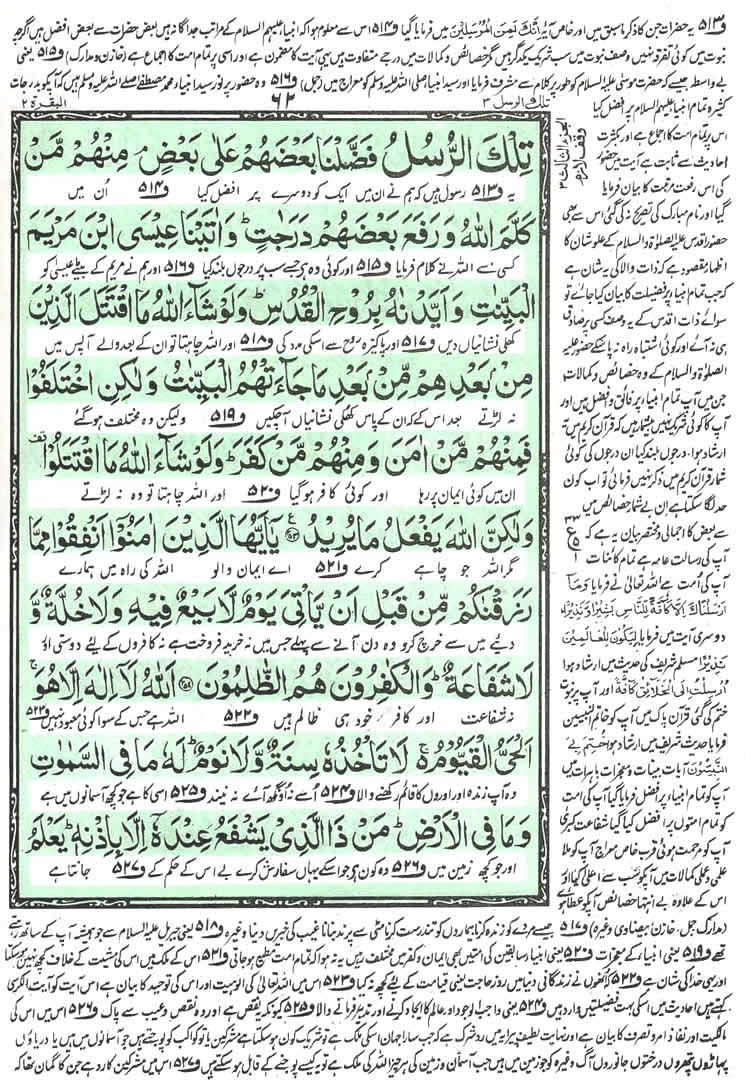 و۵۱۳ یہ حضرات جن کا ذکر ماسبق میں اور خاص آیہ اِنَّكَ لَمِنَ الْمُرْسَلِيْنَ میں فرمایا گیا و۵۱۴ اس سے معلوم ہوا کہ انبیاء علیہم السلام کے مراتب جداگانہ ہیں بعض حضرات سے بعض افضل ہیں اگرچہ
نبوت میں کوئی تفرقہ نہیں وصف نبوت میں سب شریک یکدگر ہیں مگر خصائص و کمالات میں درجے متفاوت ہیں یہی آیت کا مضمون ہے اور اسی پر تمام امت کا اجماع ہے (خازن و مدارک) و۵۱۵ یعنی
بے واسطہ جیسے کہ حضرت موسیٰ علیہ السلام کو طور پر کلام سے مشرف فرمایا اور سید انبیاء صلی اللہ علیہ وسلم کو معراج میں (جمل) و۵۱۶ وہ حضور پرنور سید انبیاء محمد مصطفےٰ صلی اللہ علیہ وسلم ہیں کہ آپکو بدرجات
تلك الرسل ۳
۶۲
البقرة ۲
کثیرہ تمام انبیاء علیہم السلام پر افضل کیا
اس پر تمام امت کا اجماع ہے اور بکثرت
احادیث سے ثابت ہے آیت میں حضور
کی اس رفعت مرتبت کا بیان فرمایا
گیا اور نام مبارک کی تصریح نہ کی گئی اس سے بھی
حضور اقدس علیہ الصلوٰۃ والسلام کے علو شان کا
اظہار مقصود ہے کہ ذات والا کی یہ شان ہے
کہ جب تمام انبیاء پر فضیلت کا بیان کیا جائے تو
سوائے ذات اقدس کے یہ وصف کسی پر صادق
ہی نہ آئے اور کوئی اشتباہ راہ نہ پا سکے حضور علیہ
الصلوٰۃ والسلام کے وہ خصائص و کمالات
جن میں آپ تمام انبیاء پر فائق و افضل ہیں اور
آپ کا کوئی شریک نہیں بیشمار ہیں کہ قرآن کریم میں یہ
ارشاد ہوا درجوں بلند کیا ان درجوں کی کوئی
شمار قرآن کریم میں ذکر نہیں فرمائی تو اب کون
حد لگا سکتا ہے ان بے شمار خصائص میں
سے بعض کا اجمالی و مختصر بیان یہ ہے کہ
آپ کی رسالت عامہ ہے تمام کائنات
آپ کی امت ہے اللہ تعالیٰ نے فرمایا وَمَآ
اَرْسَلْنٰكَ اِلَّا كَآفَّةً لِّلنَّاسِ بَشِيْرًا وَّنَذِيْرًا
دوسری آیت میں فرمایا لِيَكُوْنَ لِلْعَالَمِيْنَ
نَذِيْرًا مسلم شریف کی حدیث میں ارشاد ہوا
اُرْسِلْتُ اِلَى الْخَلَائِقِ كَآفَّةً اور آپ پر نبوت
ختم کی گئی قرآن پاک میں آپ کو خاتم النبیین
فرمایا حدیث شریف میں ارشاد ہوا خُتِمَ بِيَ
النَّبِيُّوْنَ آیات بینات و معجزات باہرات میں
آپ کو تمام انبیاء پر افضل فرمایا گیا آپ کی امت
کو تمام امتوں پر افضل کیا گیا شفاعت کبریٰ
آپ کو مرحمت ہوئی قرب خاص معراج آپ کو ملا
علمی و عملی کمالات میں آپ کو سب سے اعلیٰ کیا اور
اس کے علاوہ بے انتہا خصائص آپکو عطا ہوئے
تِلْكَ الرُّسُلُ فَضَّلْنَا بَعْضَهُمْ عَلٰى بَعْضٍ مِنْهُمْ مَّنْ
یہ و۵۱۳ رسول ہیں کہ ہم نے ان میں ایک کو دوسرے پر افضل کیا و۵۱۴ ان میں
كَلَّمَ اللّٰهُ وَرَفَعَ بَعْضَهُمْ دَرَجٰتٍ وَاٰتَيْنَا عِيْسَى ابْنَ مَرْيَمَ
کسی سے اللہ نے کلام فرمایا و۵۱۵ اور کوئی وہ ہے جسے سب پر درجوں بلند کیا و۵۱۶ اور ہم نے مریم کے بیٹے عیسیٰ کو
الْبَيِّنٰتِ وَاَيَّدْنٰهُ بِرُوْحِ الْقُدُسِ وَلَوْ شَآءَ اللّٰهُ مَا اقْتَتَلَ الَّذِيْنَ
کھلی نشانیاں دیں و۵۱۷ اور پاکیزہ روح سے اسکی مدد کی و۵۱۸ اور اللہ چاہتا تو ان کے بعد والے آپس میں
مِنْۢ بَعْدِهِمْ مِّنْۢ بَعْدِ مَا جَآءَتْهُمُ الْبَيِّنٰتُ وَلٰكِنِ اخْتَلَفُوْا
نہ لڑتے بعد اس کے کہ ان کے پاس کھلی نشانیاں آچکیں و۵۱۹ ولیکن وہ مختلف ہوگئے
فَمِنْهُمْ مَّنْ اٰمَنَ وَمِنْهُمْ مَّنْ كَفَرَ وَلَوْ شَآءَ اللّٰهُ مَا اقْتَتَلُوْا
ان میں کوئی ایمان پر رہا اور کوئی کافر ہوگیا و۵۲۰ اور اللہ چاہتا تو وہ نہ لڑتے
وَلٰكِنَّ اللّٰهَ يَفْعَلُ مَا يُرِيْدُ يٰۤاَيُّهَا الَّذِيْنَ اٰمَنُوْۤا اَنْفِقُوْا مِمَّا
مگر اللہ جو چاہے کرے و۵۲۱ اے ایمان والو اللہ کی راہ میں ہمارے
رَزَقْنٰكُمْ مِّنْ قَبْلِ اَنْ يَّاْتِيَ يَوْمٌ لَّا بَيْعٌ فِيْهِ وَلَا خُلَّةٌ وَّ
دئیے میں سے خرچ کرو وہ دن آنے سے پہلے جس میں نہ خرید فروخت ہے نہ کافروں کے لئے دوستی اور
لَا شَفَاعَةٌ وَالْكٰفِرُوْنَ هُمُ الظّٰلِمُوْنَ اَللّٰهُ لَاۤ اِلٰهَ اِلَّا هُوَ
نہ شفاعت اور کافر خود ہی ظالم ہیں و۵۲۲ اللہ ہے جس کے سوا کوئی معبود نہیں و۵۲۳
اَلْحَيُّ الْقَيُّوْمُ لَا تَاْخُذُهٗ سِنَةٌ وَّلَا نَوْمٌ لَهٗ مَا فِي السَّمٰوٰتِ
وہ آپ زندہ اور اوروں کا قائم رکھنے والا و۵۲۴ اسے نہ اونگھ آئے نہ نیند و۵۲۵ اسی کا ہے جو کچھ آسمانوں میں ہے
وَمَا فِي الْاَرْضِ مَنْ ذَا الَّذِيْ يَشْفَعُ عِنْدَهٗۤ اِلَّا بِاِذْنِهٖ يَعْلَمُ
اور جو کچھ زمین میں و۵۲۶ وہ کون ہے جو اسکے یہاں سفارش کرے بے اس کے حکم کے و۵۲۷ جانتا ہے
(مدارک، جمل، خازن بیضاوی وغیرہ) و۵۱۷ جیسے مردے کو زندہ کرنا بیماروں کو تندرست کرنا مٹی سے پرند بنانا غیب کی خبریں دینا وغیرہ و۵۱۸ یعنی جبریل علیہ السلام سے جو ہمیشہ آپ کے ساتھ رہتے
تھے و۵۱۹ یعنی انبیاء کے معجزات و۵۲۰ یعنی انبیاء سابقین کی امتیں بھی ایمان و کفر میں مختلف رہیں یہ نہ ہوا کہ تمام امت مطیع ہو جاتی و۵۲۱ اس کے ملک میں اس کی مشیت کے خلاف کچھ نہیں ہو سکتا
اور یہی خدا کی شان ہے و۵۲۲ کہ انھوں نے زندگانی دنیا میں روز حاجت یعنی قیامت کے لئے کچھ نہ کیا و۵۲۳ اس میں اللہ تعالیٰ کی الوہیت اور اس کی توحید کا بیان ہے اس آیت کو آیۃ الکرسی
کہتے ہیں احادیث میں اسکی بہت فضیلتیں وارد ہیں و۵۲۴ یعنی واجب الوجود اور عالم کا ایجاد کرنے اور تدبیر فرمانے والا و۵۲۵ کیونکہ یہ نقص ہے اور وہ نقص و عیب سے پاک و۵۲۶ اس میں اس کی
مالکیت اور نفاذ امر و تصرف کا بیان ہے اور نہایت لطیف پیرایہ میں رد شرک ہے کہ جب سارا جہان اسکی ملک ہے تو شریک کون ہو سکتا ہے مشرکین یا تو کواکب کو پوجتے ہیں جو آسمانوں میں ہیں یا دریاؤں
پہاڑوں پتھروں درختوں جانوروں آگ وغیرہ کو جو زمین میں ہیں جب آسمان و زمین کی ہر چیز اللہ کی ملک ہے تو یہ کیسے پوجنے کے قابل ہو سکتے ہیں و۵۲۷ اس میں مشرکین کا رد ہے جن کا گمان تھا کہ